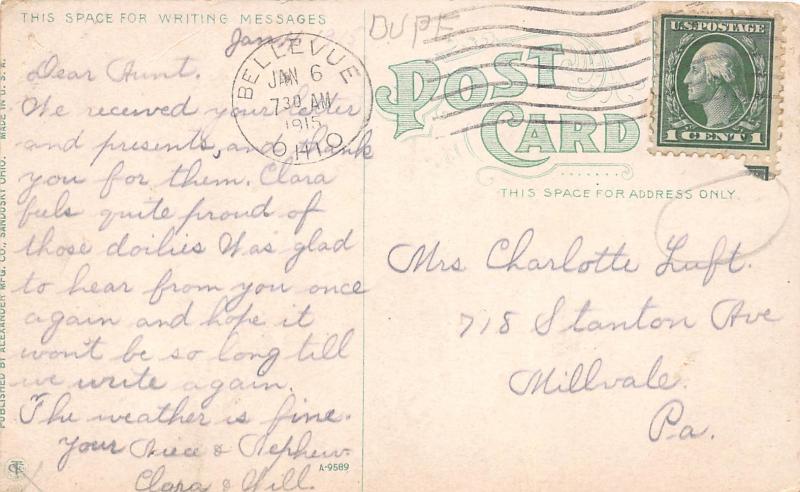 THIS SPACE FOR WRITING MESSAGES
Dear Aunt.
We received your letter
and presents, and thank
you for them. Clara
feels quite proud of
those doilies Was glad
to hear from you once
again and hope it
won't be so long till
we write again.
The weather is fine.
Your Niece & Nephew
Clara & Will.
PUBLISHED BY ALEXANDER MFG. CO., SANDUSKY OHIO. MADE IN U.S.A.
A-9589
BELLEVUE
JAN 6
730 AM
1915
OHIO
DUPE
POST
CARD
THIS SPACE FOR ADDRESS ONLY.
U.S. POSTAGE
1 CENT 1
Mrs Charlotte Luft.
718 Stanton Ave
Millvale.
Pa.